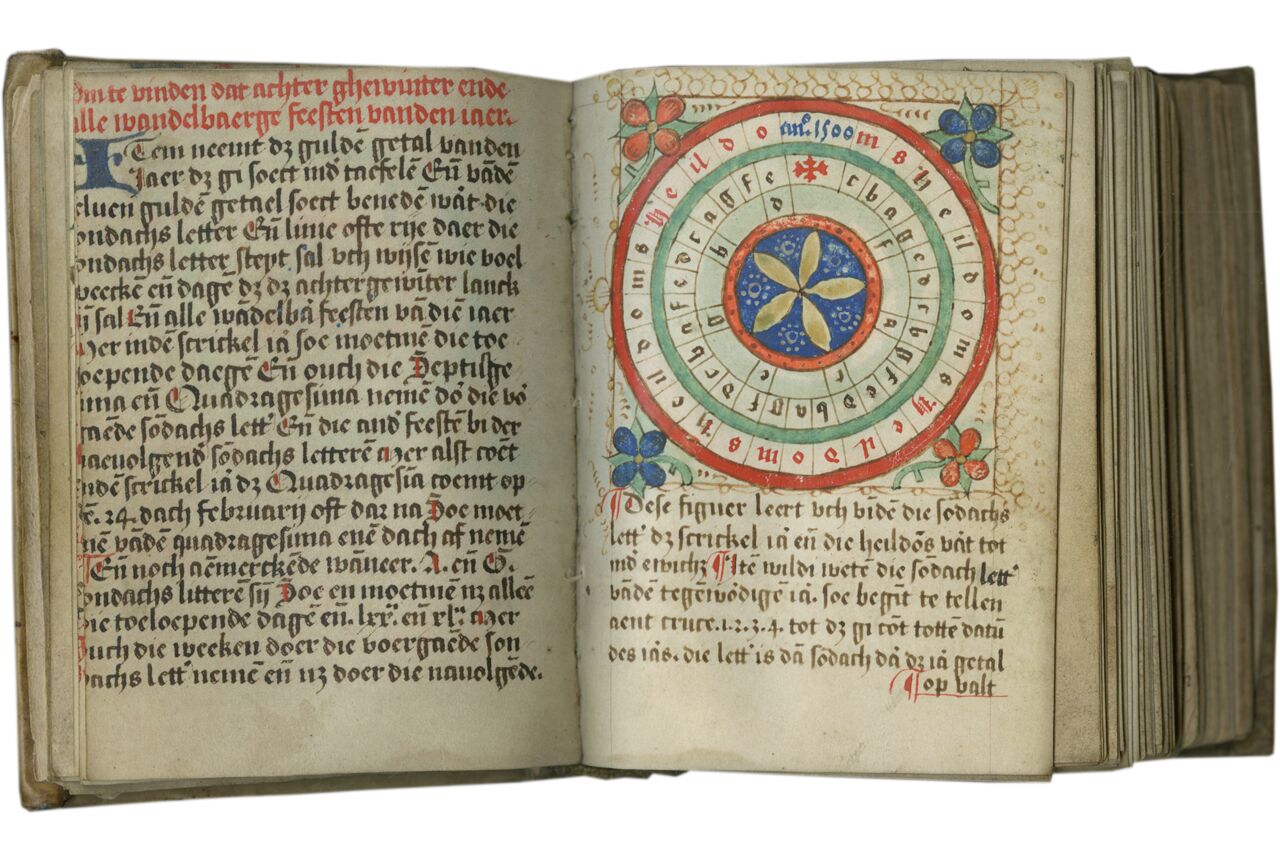 Om te vinden dat achter ghewinter ende
alle wandelbaerge feesten vanden iaer.
ITem neemt dz guldē getal vanden
Jaer dz gi soect ind taefelē Eñ vādē
seluen guldē getael soect benedē wāt die
sondachs letter Eñ linie ofte rije daer die
sondachs letter stept sal vch wijsē wie voel
weeckē eñ dagē dz dz achtergewīter lanck
sal Eñ alle wādelbā feesten vā die iaer
Mer indē scrickel iā soe moetmē die toe
loepende daegē Eñ ouch die Septuage
sima eñ Quadragesima nemē dō die vō
gaēde sōdachs lett Eñ die and feestē bi der
naeuolgend sōdachs letterē mer alst coēt
indē scrickel iā dz Quadragesiā coemt op
dē .24. dach februarij oft dar na Doe moet
mē vādē quadragesima enē dach af nemē
Eñ noch aēmerckēde wāneer. A. eñ G.
sondachs litterē sij Doe en moetmē nz alleē
die toeloepende dagē eñ. lxx. eñ xl. mer
Ouch die weeken doer die voergaēde son
dachs lett nemē eñ nz doer die nauolgēde.
an. 1500 m s h e u d o m s h e u d o m s h e u d o m s h e u d o
c b a g f e d c b a g f e d c b a g f e d c b a g f e d
Dese figuer leert vch vīdē die sōdachs
lett dz scrickel iā eñ die heildōs vāt tot
ind ewichz Itē wildi wetē die sōdach lett
vādē tegēwōdigē iā. soe begīt te tellen
aent cruce .1.2.3.4. tot dz gi cōt tottē datū
des iās. die lett is dā sōdach dā dz iā getal
op valt